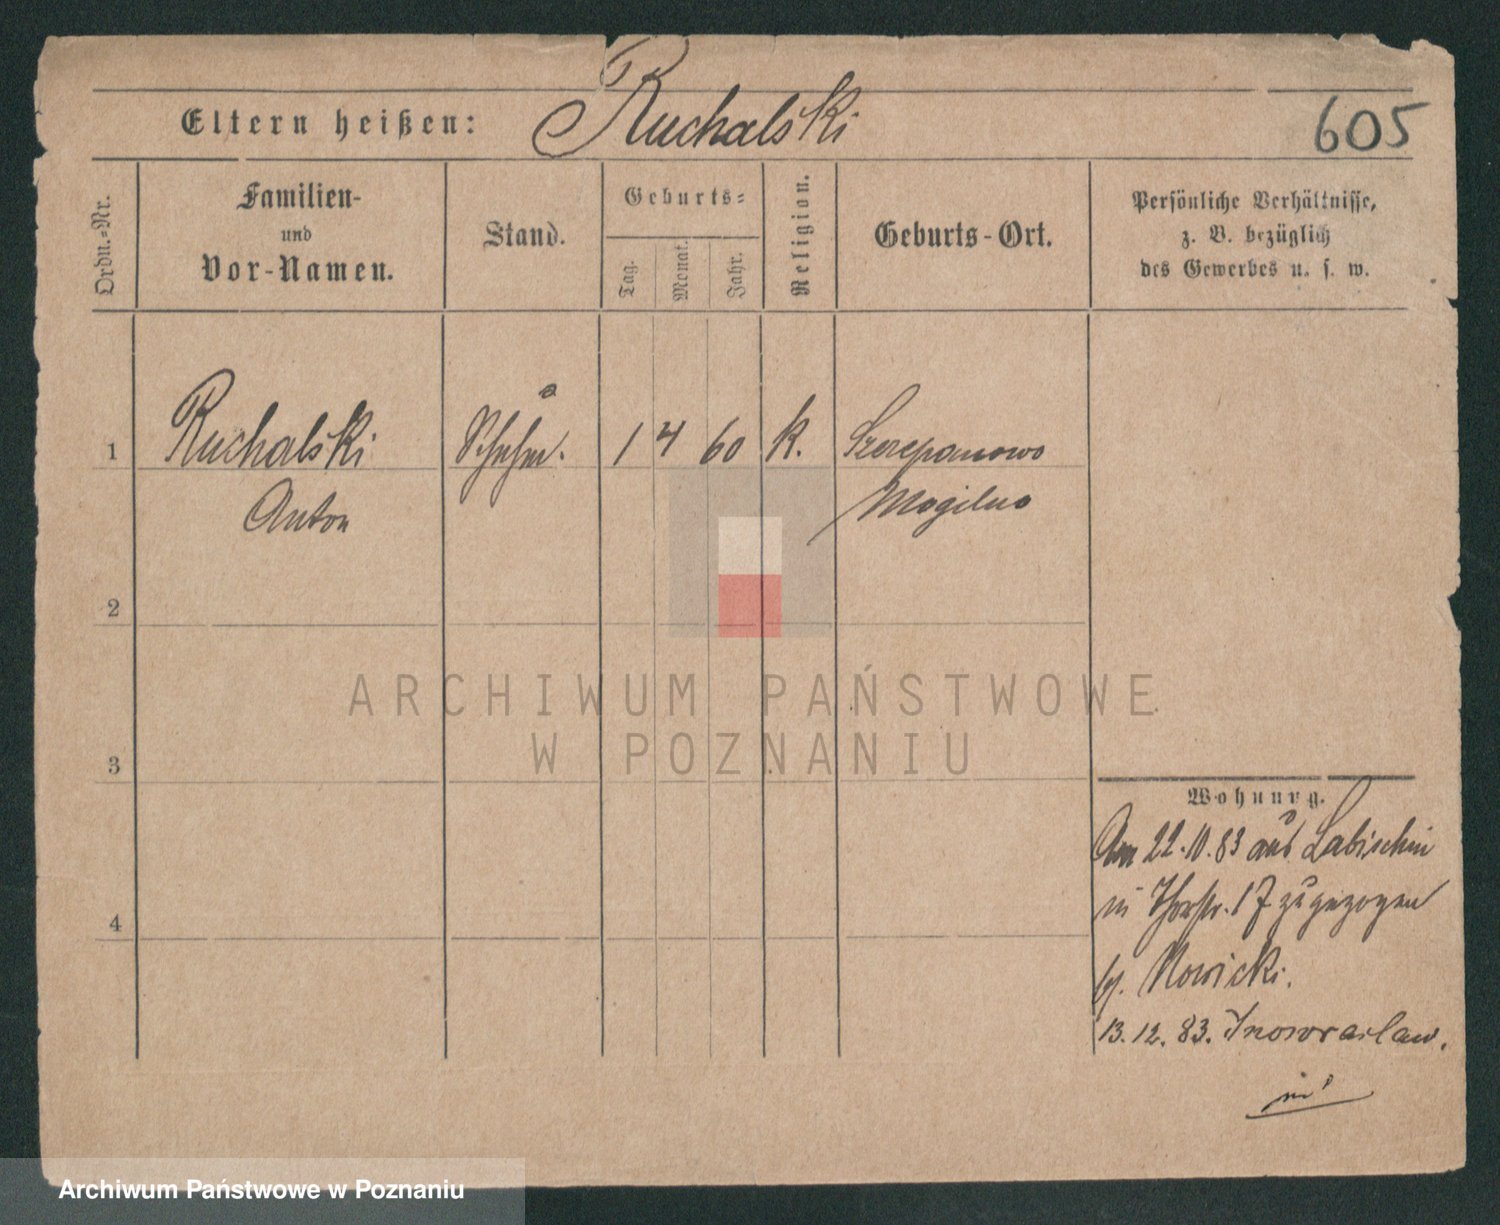 Eltern heißen: Ruchalski 605
Ordn.-Nr.
Familien-
und
Vor-Namen.
Stand.
Geburts-
Tag.
Monat.
Jahr.
Religion.
Geburts-Ort.
Persönliche Verhältnisse,
z. B. bezüglich
des Gewerbes u. s. w.
1 Ruchalski 1 4 60 k. Szczepanowo
Anton Mogilno
2
3
4
Wohnung.
Am 22.10.83 aus Labischin
in 17 zugezogen
bei Nowicki.
13.12.83. Inowraclaw.
ARCHIWUM PAŃSTWOWE
W POZNANIU
Archiwum Państwowe w Poznaniu